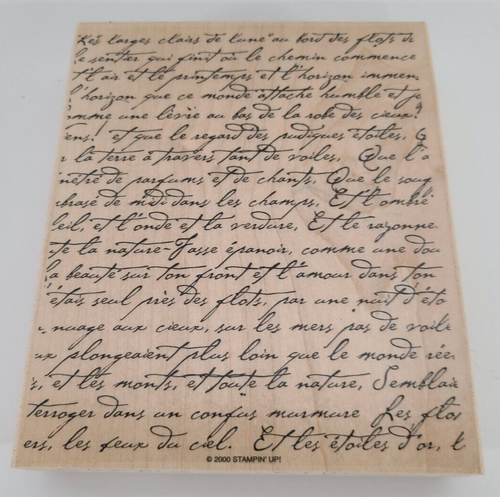 Les larges clairs de lune au bord des flots de
le sentier qui finit où le chemin commence
et l'air et le printemps et l'horizon immen
l'horizon que ce monde attache humble et je
omme une lèvre au bas de la robe des cieux!
ens! et que le regard des pudiques étoiles, Q
r la terre à travers tant de voiles, Que l'o
nétré de parfums et de chants, Que le soug
brasé de midi dans les champs, Et l'ombre
leil, et l'onde et la verdure, Et le rayonne
te la nature Fasse épanoir, comme une dou
la beauté sur ton front et l'amour dans ton
étais seul près des flots, par une nuit d'éto
, nuage aux cieux, sur les mers pas de voile
ux plongeaient plus loin que le monde rée
s, et les monts, et toute la nature, Semblaie
terroger dans un confus murmure Les flot
ers, les feux du ciel. Et les étoiles d'or, l
© 2000 STAMPIN' UP!